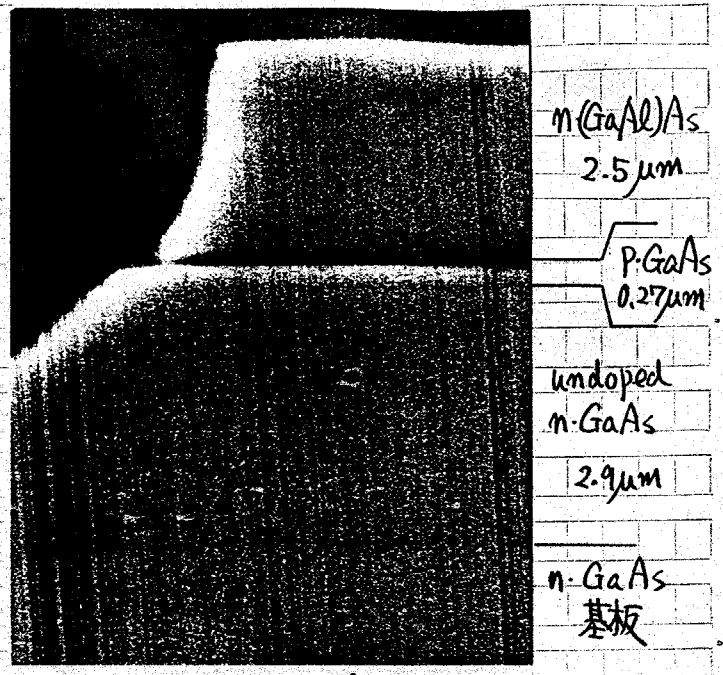 n-(GaAl)As
2.5 μm
p-GaAs
0.27μm
undoped
n-GaAs
2.9μm
n-GaAs
基板